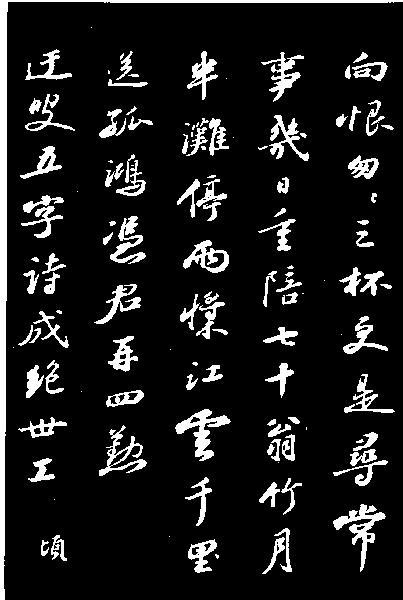 向恨匆〻三杯更是尋常
事幾日重陪七十翁竹月
半灘停雨槳江雲千里
送孤鴻憑君再四勤
迂叟五字詩成絕世工 頃